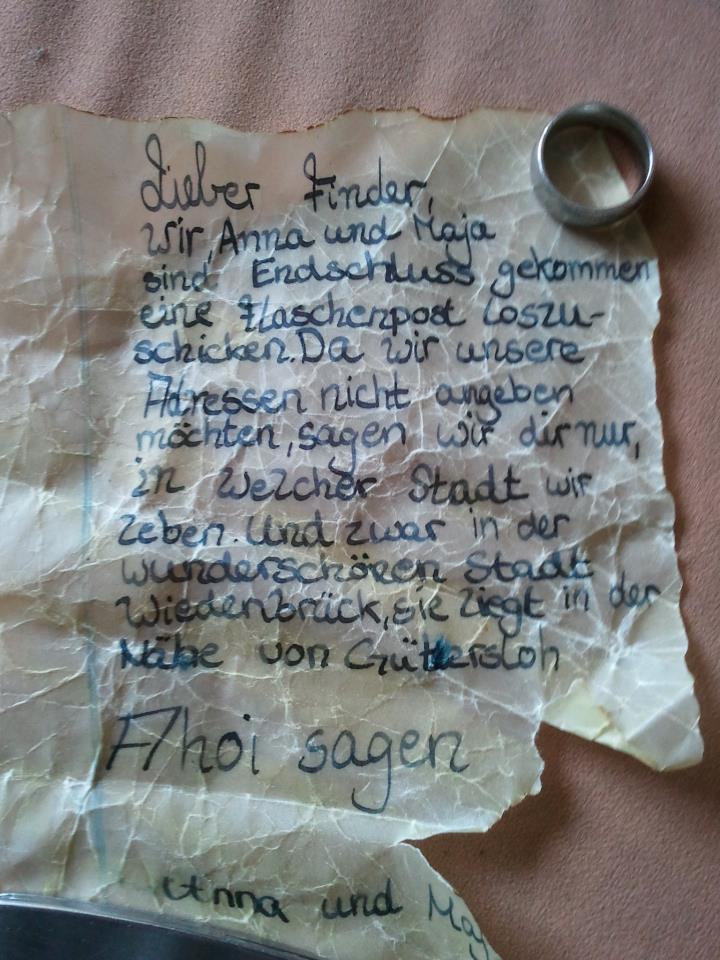 Lieber Finder,
Wir, Anna und Maja
sind Endschluss gekommen
eine Flaschenpost loszu-
schicken. Da wir unsere
Adressen nicht angeben
möchten, sagen wir dir nur,
in welcher Stadt wir
leben. Und zwar in der
wunderschönen Stadt
Wiedenbrück, sie liegt in der
Nähe von Gütersloh
Ahoi sagen
Anna und Maj